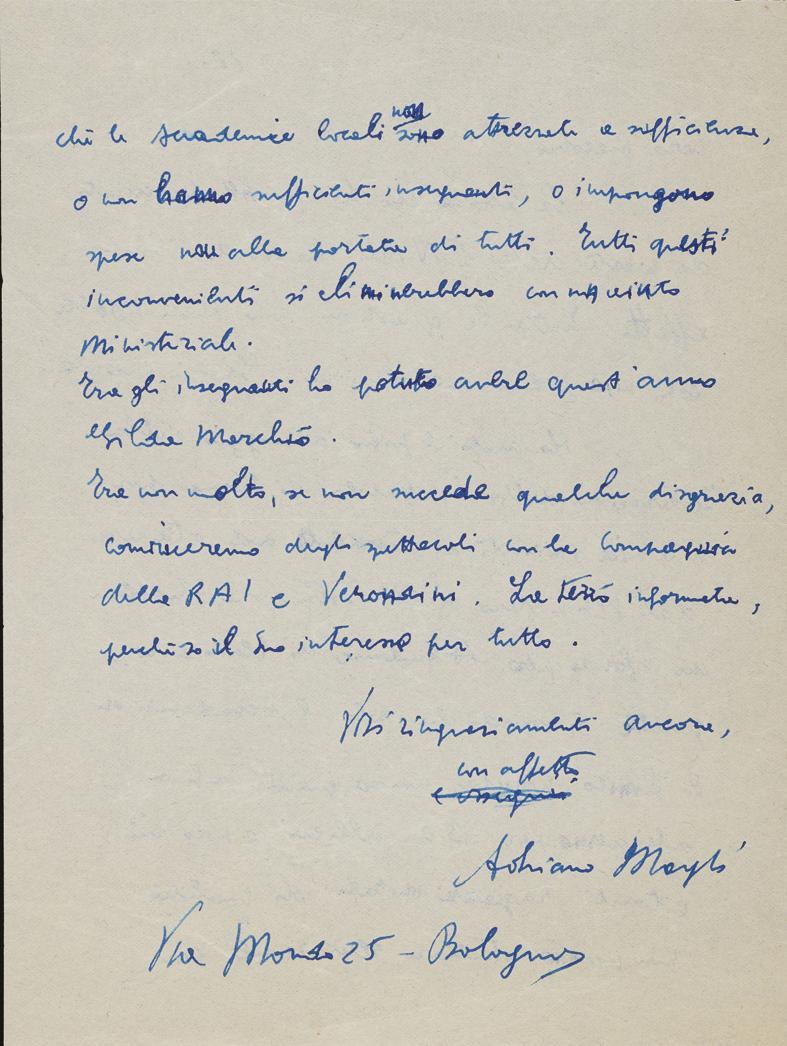 chè le Accademie locali non sono attrezzate a sufficienza,
o non hanno sufficienti insegnanti, o impongono
spese non alla portata di tutti. Tutti questi
inconvenienti si eliminerebbero con un aiuto
Ministeriale.
Fra gli insegnanti ho potuto avere quest'anno
Gilda Marchiò.
Fra non molto, se non succede qualche disgrazia,
cominceremo degli spettacoli con la Compagnia
della RAI e Verondini. La terrò informata,
perchè so il Suo interesse per tutto.
Vivi ringraziamenti ancora,
con affetto
e ossequio
Adriano Magli
Via Mondo 25 - Bologna